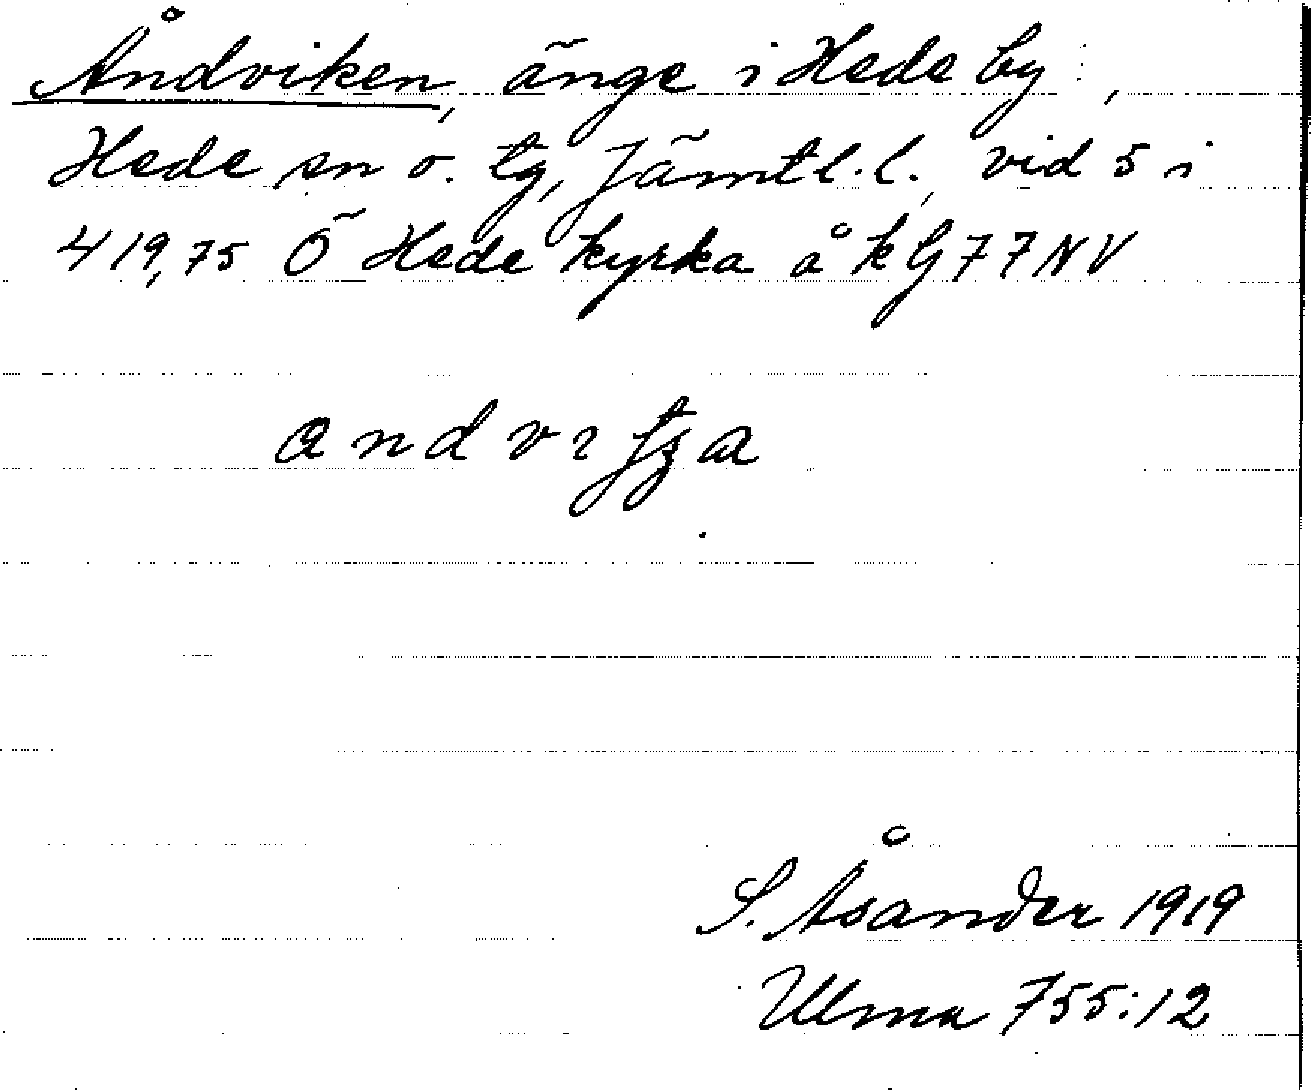 Åndviken, änge i Hede by,
Hede sn o. tg, Jämtl. l., vid 5 i
419,75 Ö Hede kyrka å k G 77 NV
S. Åsander 1919
Ulma 755:12